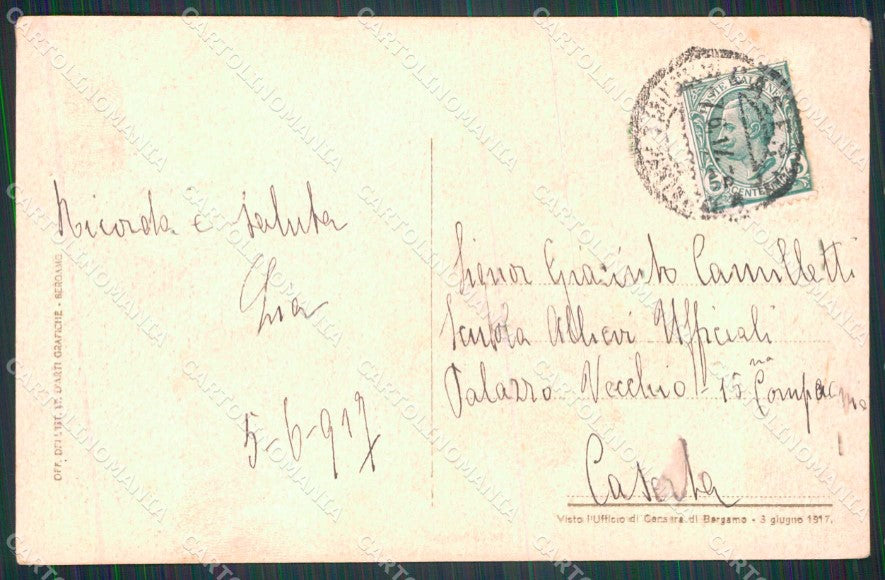 Ricorda e saluta
5-6-917
OFF. DELL'IST. IT. D'ARTI GRAFICHE - BERGAMO
POSTE ITALIANE
CENTESIMI 5
Signor Giacinto Camilletti
Scuola Allievi Ufficiali
Palazzo Vecchio - 15na Compagnia
Caserta
Visto l'Ufficio di Censura di Bergamo - 3 giugno 1917.
CARTOLINOMANIA